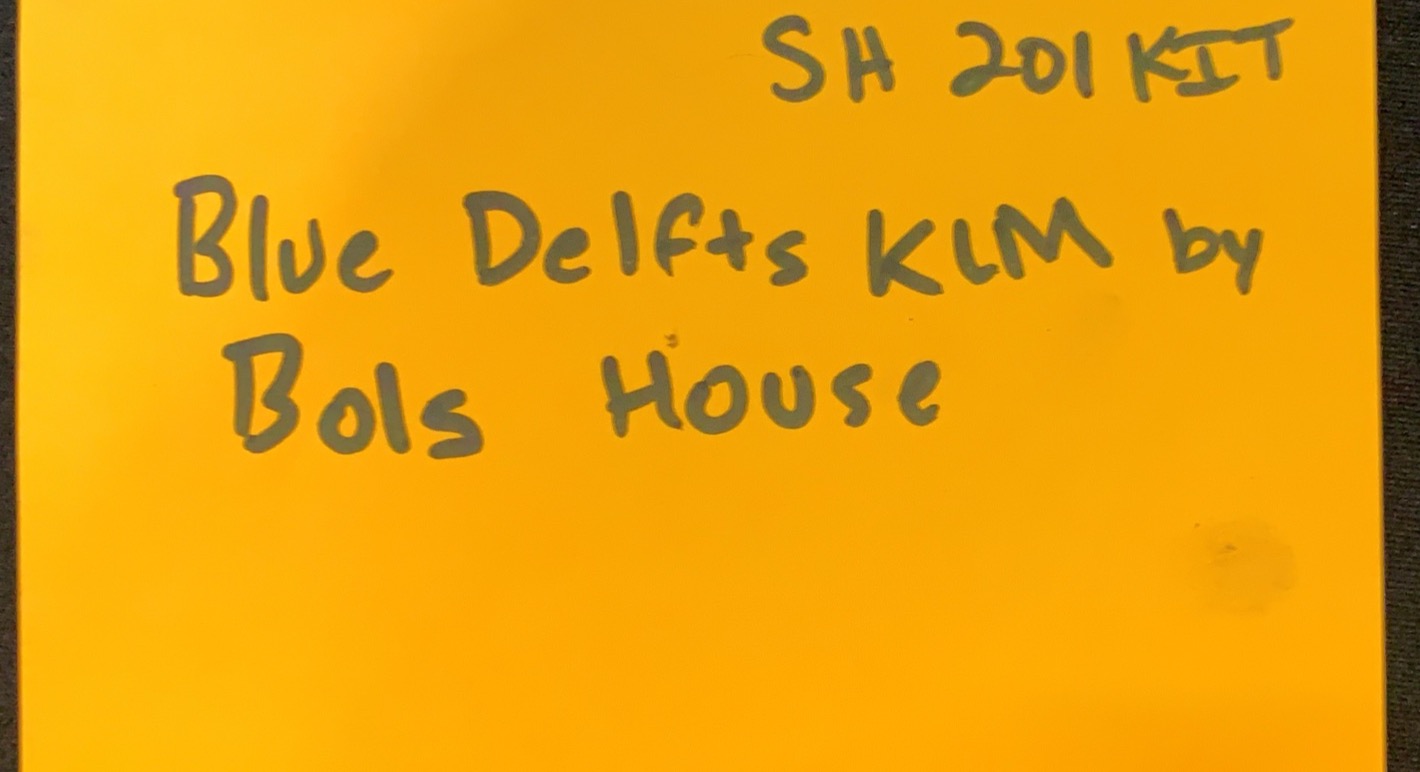 SH 201 KIT
Blue Delfts KLM by
Bols House